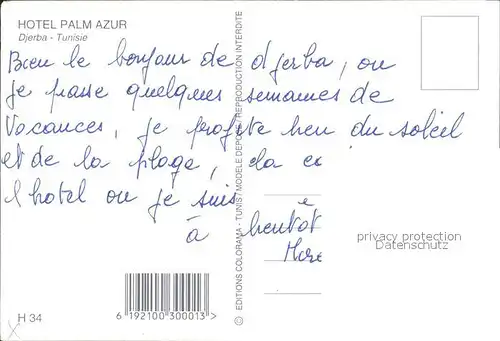 HOTEL PALM AZUR
Djerba - Tunisie
Bien le bonjour de djerba, ou
je passe quelques semaines de
Vacances, je profite bien du soleil
et de la plage,
l hotel ou je suis
à bientot
© EDITIONS COLORAMA - TUNIS / MODELE DEPOSE REPRODUCTION INTERDITE
privacy protection
Datenschutz
6 192100 300013 >
H 34